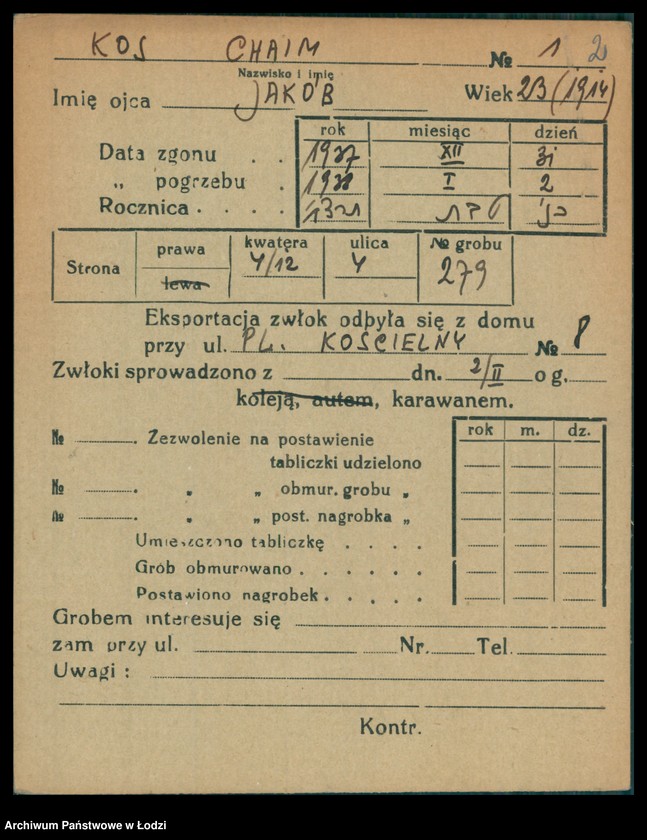 KOS CHAIM № 1 2
Nazwisko i imię
Imię ojca JAKÓB Wiek 23 (1914)
rok miesiąc dzień
Data zgonu . . 1937 XII 31
„ pogrzebu . 1938 I 2
Rocznica . . . .
Strona prawa kwatera ulica № grobu
lewa Y/12 Y 279
Eksportacja zwłok odbyła się z domu
przy ul. PL. KOŚCIELNY № 8
Zwłoki sprowadzono z dn. 2/II o g.
koleją, autem, karawanem.
rok m. dz.
№ . Zezwolenie na postawienie
tabliczki udzielono
№ . „ „ obmur. grobu „
№ . „ „ post. nagrobka „
Umieszczono tabliczkę . . . .
Grób obmurowano . . . . . .
Postawiono nagrobek . . . . .
Grobem interesuje się
zam przy ul. Nr. Tel.
Uwagi :
Kontr.
Archiwum Państwowe w Łodzi